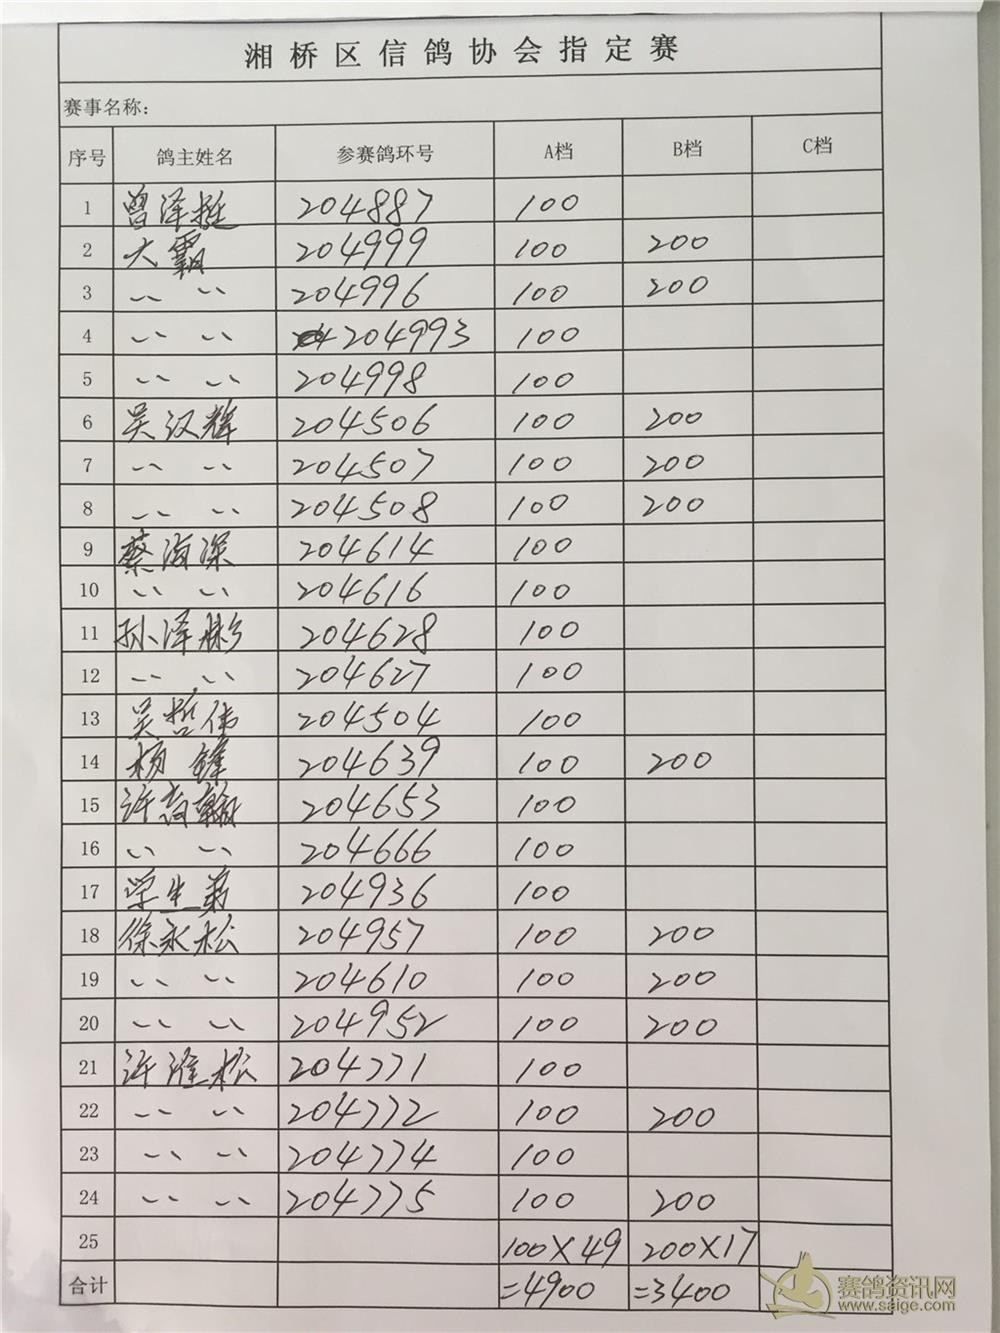 湘桥区信鸽协会指定赛
赛事名称:
序号 鸽主姓名 参赛鸽环号 A档 B档 C档
1 曾泽挺 204887 100
2 大霸 204999 100 200
3 〃 〃 204996 100 200
4 〃 〃 204993 100
5 〃 〃 204998 100
6 吴汉辉 204506 100 200
7 〃 〃 204507 100 200
8 〃 〃 204508 100 200
9 蔡海深 204614 100
10 〃 〃 204616 100
11 孙泽彬 204628 100
12 〃 〃 204627 100
13 吴哲伟 204504 100
14 杨锋 204639 100 200
15 许 翰 204653 100
16 〃 〃 204666 100
17 学生弟 204936 100
18 徐永松 204957 100 200
19 〃 〃 204610 100 200
20 〃 〃 204952 100 200
21 许 松 204771 100
22 〃 〃 204772 100 200
23 〃 〃 204774 100
24 〃 〃 204775 100 200
25 100×49 200×17
合计 =4900 =3400
赛鸽资讯网
www.saige.com